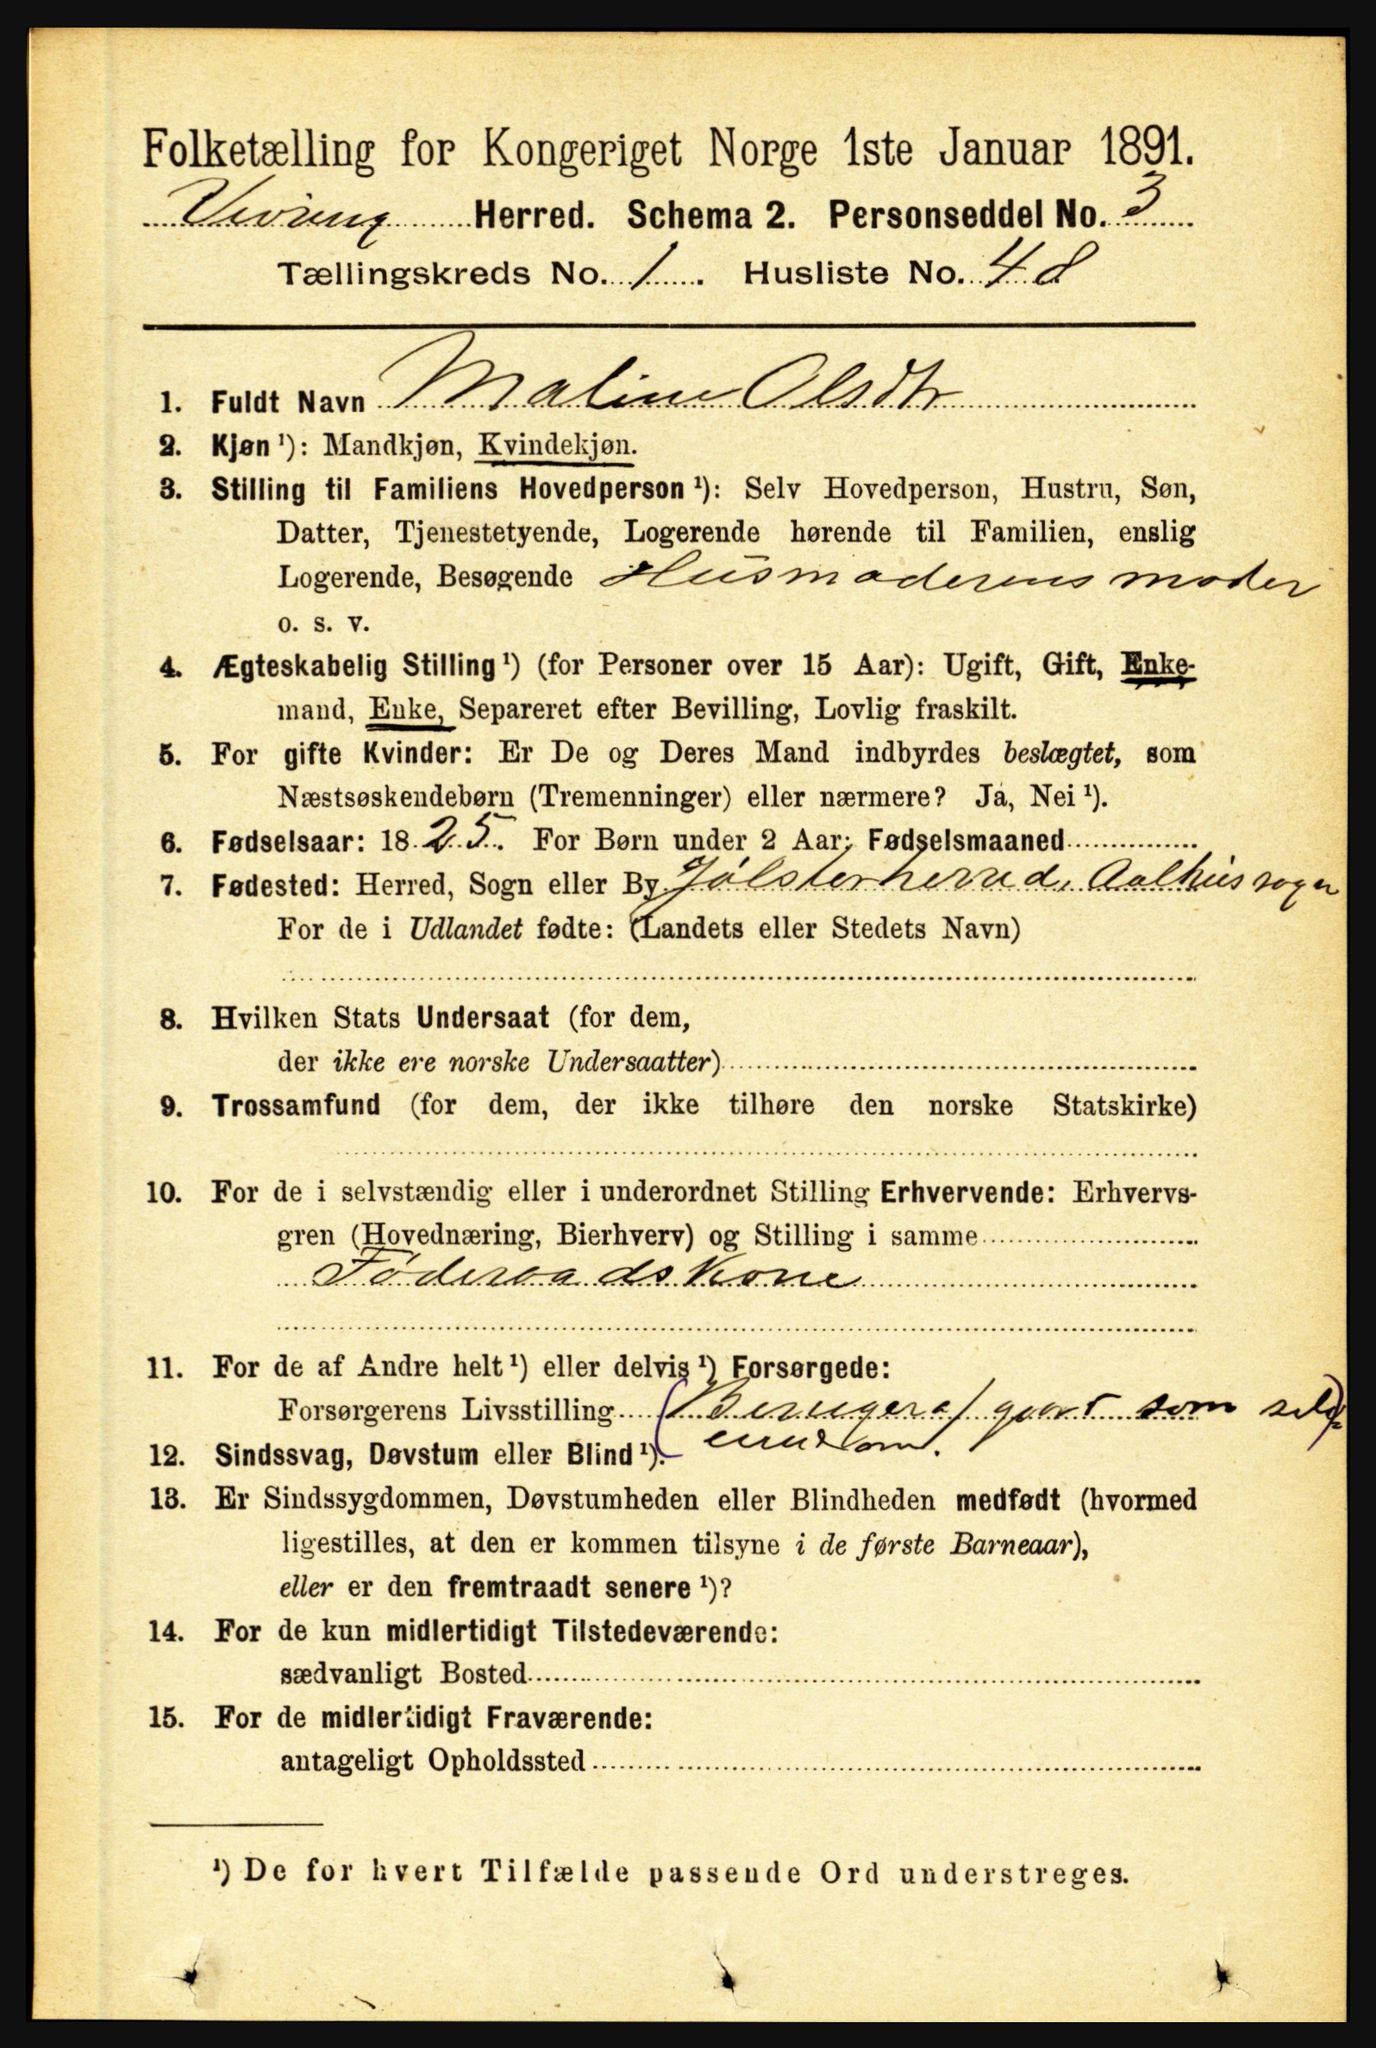 Folketælling for Kongeriget Norge 1ste Januar 1891.
Vevring Herred. Schema 2. Personseddel No. 3
Tællingskreds No. 1. Husliste No. 48
1. Fuldt Navn Maline Olsdtr
2. Kjøn ¹): Mandkjøn, Kvindekjøn.
3. Stilling til Familiens Hovedperson ¹): Selv Hovedperson, Hustru, Søn,
Datter, Tjenestetyende, Logerende hørende til Familien, enslig
Logerende, Besøgende Husmoderens moder
o. s. v.
4. Ægteskabelig Stilling ¹) (for Personer over 15 Aar): Ugift, Gift, Enke-
mand, Enke, Separeret efter Bevilling, Lovlig fraskilt.
5. For gifte Kvinder: Er De og Deres Mand indbyrdes beslægtet, som
Næstsøskendebørn (Tremenninger) eller nærmere? Ja, Nei ¹).
6. Fødselsaar: 1825. For Børn under 2 Aar: Fødselsmaaned
7. Fødested: Herred, Sogn eller By Jølsterherred, Aalhus sogn
For de i Udlandet fødte: (Landets eller Stedets Navn)
8. Hvilken Stats Undersaat (for dem,
der ikke ere norske Undersaatter)
9. Trossamfund (for dem, der ikke tilhøre den norske Statskirke)
10. For de i selvstændig eller i underordnet Stilling Erhvervende: Erhvervs-
gren (Hovednæring, Bierhverv) og Stilling i samme
Føderaadskone
11. For de af Andre helt ¹) eller delvis ¹) Forsørgede:
Forsørgerens Livsstilling (Bruger af gaard som selv-
eiendom.)
12. Sindssvag, Døvstum eller Blind ¹).
13. Er Sindssygdommen, Døvstumheden eller Blindheden medfødt (hvormed
ligestilles, at den er kommen tilsyne i de første Barneaar),
eller er den fremtraadt senere ¹)?
14. For de kun midlertidigt Tilstedeværende:
sædvanligt Bosted
15. For de midlertidigt Fraværende:
antageligt Opholdssted
¹) De for hvert Tilfælde passende Ord understreges.